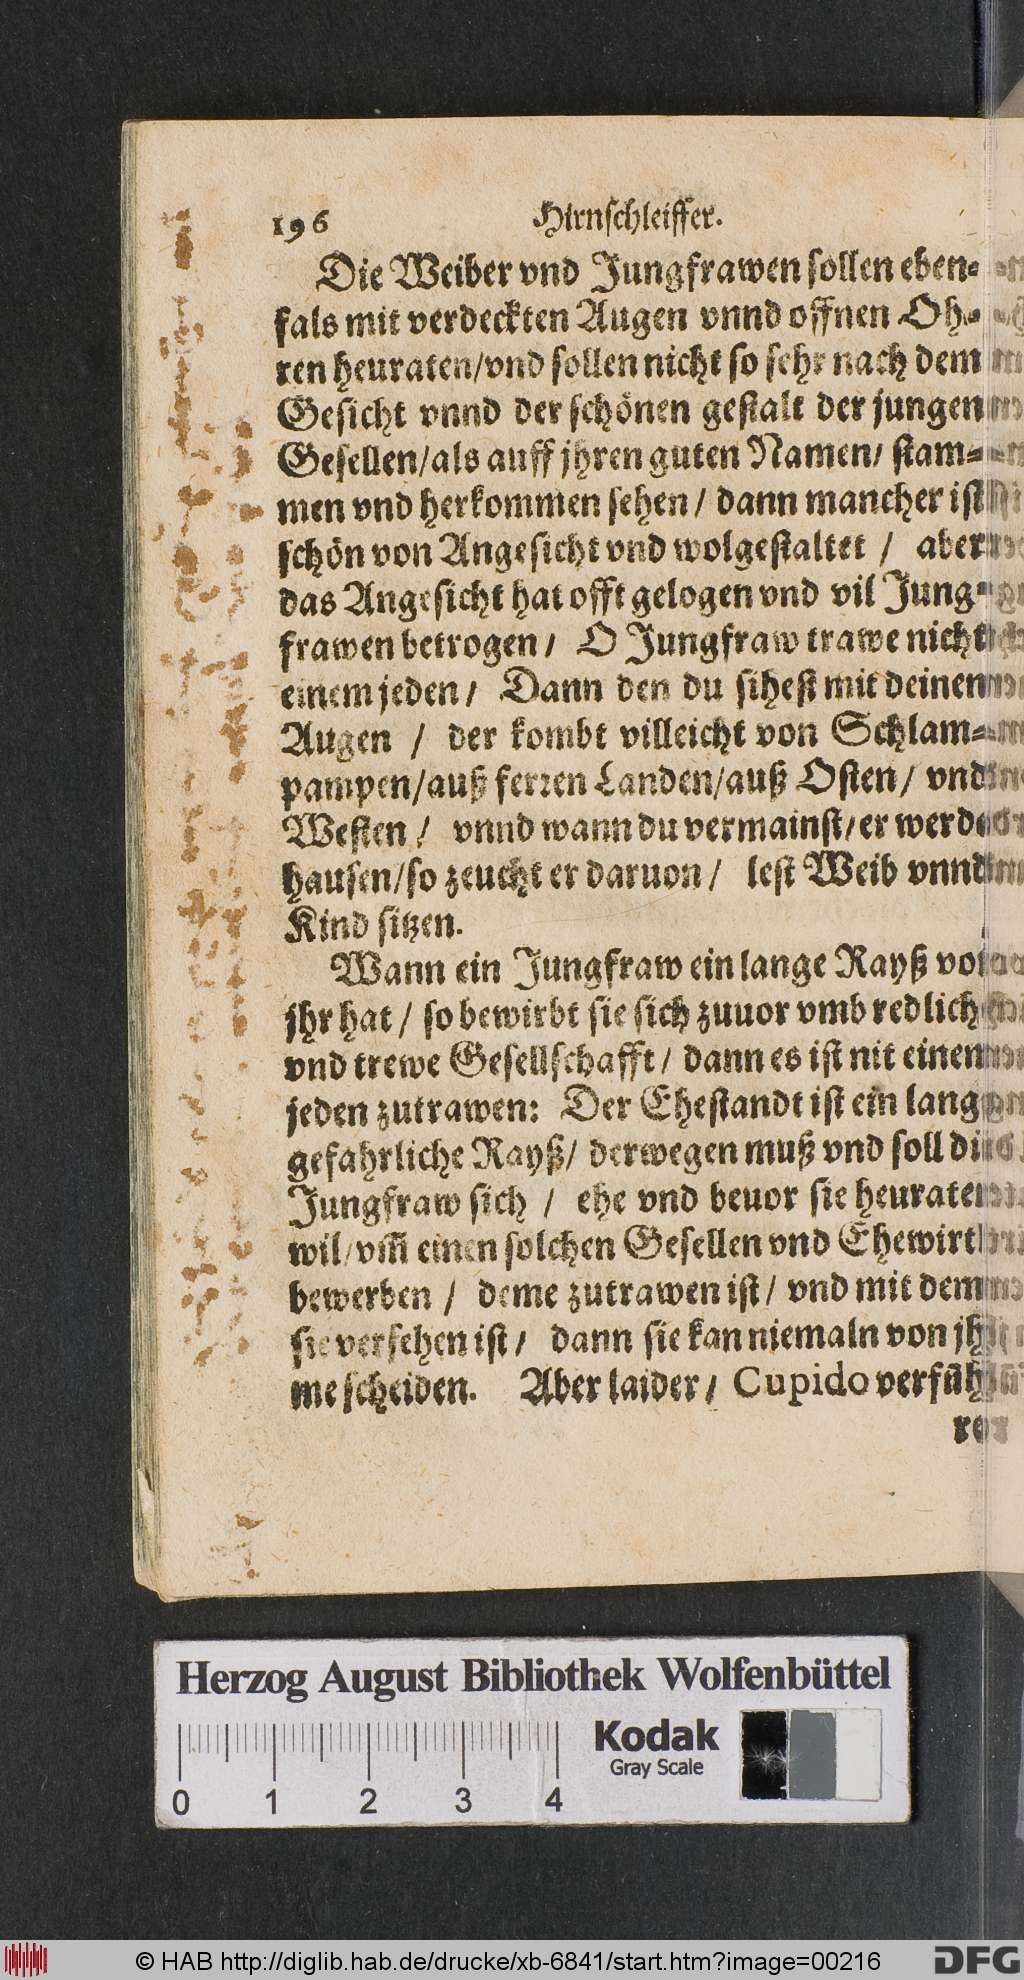 196 Hirnschleiffer.
Die Weiber vnd Jungfrawen sollen eben-
fals mit verdeckten Augen vnnd offnen Oh-
ren heuraten/vnd sollen nicht so sehr nach dem
Gesicht vnnd der schönen gestalt der jungen
Gesellen/als auff jhren guten Namen/ stam-
men vnd herkommen sehen/ dann mancher ist
schön von Angesicht vnd wolgestaltet / aber
das Angesicht hat offt gelogen vnd vil Jung-
frawen betrogen/ O Jungfraw trawe nicht
einem jeden/ Dann den du sihest mit deinen
Augen / der kombt villeicht von Schlam-
pampen/auß ferren Landen/auß Osten/ vnd
Westen/ vnnd wann du vermainst/er werde
hausen/so zeucht er daruon/ lest Weib vnnd
Kind sitzen.
Wann ein Jungfraw ein lange Rayß vor
jhr hat/ so bewirbt sie sich zuuor vmb redlich
vnd trewe Gesellschafft/ dann es ist nit einem
jeden zutrawen: Der Ehestandt ist ein lang
gefahrliche Rayß/ derwegen muß vnd soll die
Jungfraw sich / ehe vnd beuor sie heuraten
wil/vm̃ einen solchen Gesellen vnd Ehewirt
bewerben / deme zutrawen ist/ vnd mit dem
sie versehen ist/ dann sie kan niemaln von jh-
me scheiden. Aber laider/ Cupido verfüh-
ret
Herzog August Bibliothek Wolfenbüttel
Kodak
Gray Scale
0 1 2 3 4
© HAB http://diglib.hab.de/drucke/xb-6841/start.htm?image=00216
DFG